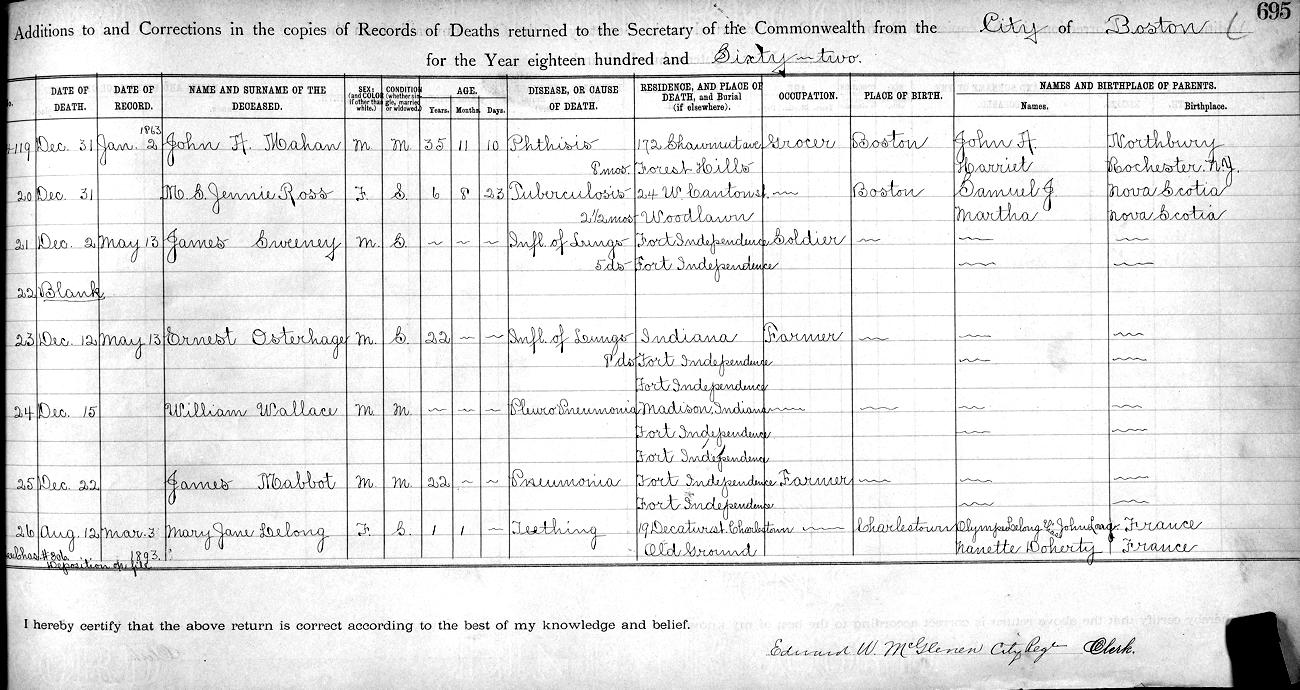 695
Additions to and Corrections in the copies of Records of Deaths returned to the Secretary of the Commonwealth from the City of Boston
for the Year eighteen hundred and Sixty-two.
DATE OF DEATH. DATE OF RECORD. NAME AND SURNAME OF THE DECEASED. SEX; (and COLOR if other than white.) CONDITION (whether single, married or widowed.) AGE. Years. Months. Days. DISEASE, OR CAUSE OF DEATH. RESIDENCE, AND PLACE OF DEATH, and Burial (if elsewhere). OCCUPATION. PLACE OF BIRTH. NAMES AND BIRTHPLACE OF PARENTS. Names. Birthplace.
1863
119 Dec. 31 Jan. 2 John A. Mahan M. M. 35 11 10 Phthisis 172 Shawmut ave Grocer Boston John A. Northbury
8 mos. Forest Hills Harriet Rochester. N.Y.
20 Dec. 31 M. E. Jennie Ross F. S. 6 8 23 Tuberculosis 24 W. Canton st. — Boston Samuel J Nova Scotia
2 1/2 mos Woodlawn Martha Nova Scotia
21 Dec. 2 May 13 James Sweeney M. S. ~ ~ ~ Infl. of Lungs Fort Independence Soldier — — —
5 ds Fort Independence — —
22 Blank
23 Dec. 12 May 13 Ernest Osterhage M. S. 22 ~ ~ Infl. of Lungs Indiana Farmer — — —
8 ds Fort Independence — —
Fort Independence
24 Dec. 15 William Wallace M. M. ~ ~ ~ Pleuro Pneumonia Madison, Indiana — — — —
Fort Independence — —
Fort Independence
25 Dec. 22 James Mabbot M. M. 22 ~ ~ Pneumonia Fort Independence Farmer — — —
Fort Independence — —
26 Aug. 12 Mar. 3 Mary Jane Delong F. S. 1 1 — Teething 19 Decatur st. Charlestown — Charlestown Olympe Delong John Long France
1893. Old Ground Nanette Doherty France
Deposition on file
I hereby certify that the above return is correct according to the best of my knowledge and belief.
Edward W. McGlenen City Regr Clerk.